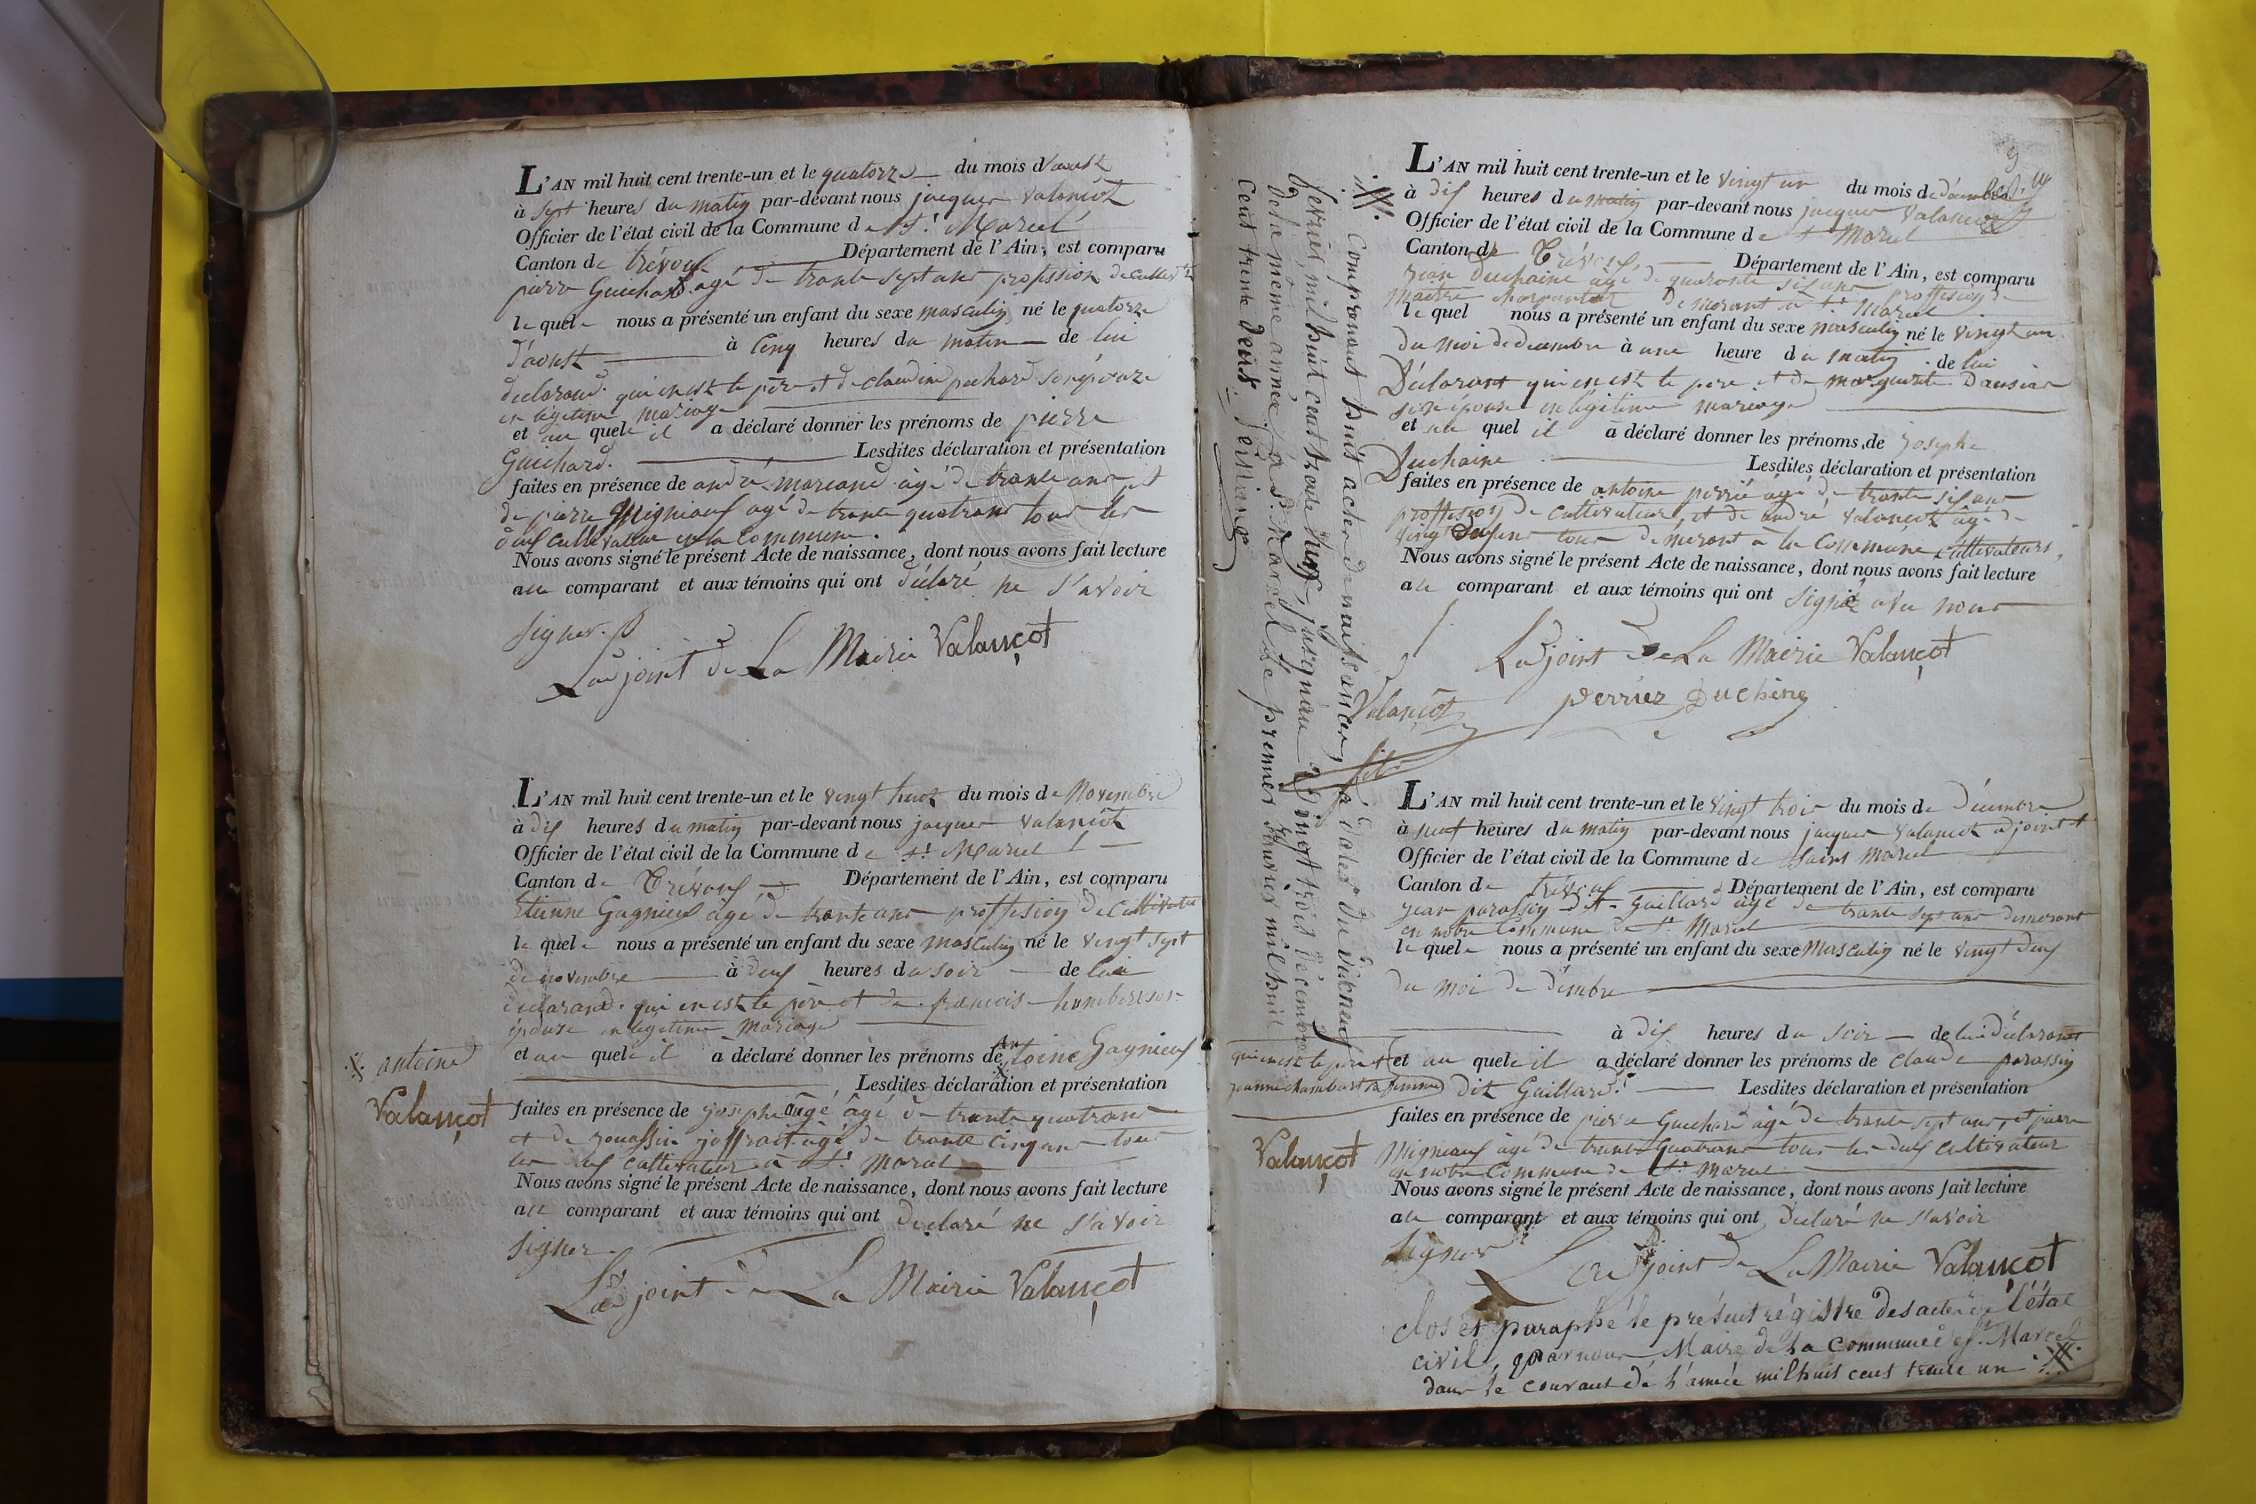 L'AN mil huit cent trente-un et le quatorze du mois d'aoust
à sept heures du matin par-devant nous jacques Valançot
Officier de l'état civil de la Commune de St. Marcel
Canton de trévoux Département de l'Ain, est comparu
pierre Guichard agé de trante sept ans profission de cultivat
le quel nous a présenté un enfant du sexe masculin né le quatorze
d'aoust à Cinq heures du matin de lui
declarand qui en est le père et de claudine pochard son épouze
en légitime mariage
et au quele il a déclaré donner les prénoms de pierre
Guichard. Lesdites déclaration et présentation
faites en présence de andré marcand âgé de trante ans et
de pierre Mignieux agé de trante quatrans tous les
deux cultivateur en la Commune.
Nous avons signé le présent Acte de naissance, dont nous avons fait lecture
au comparant et aux témoins qui ont déclaré ne s'avoir
signer.
L'adjoint de La Mairie Valançot
L'AN mil huit cent trente-un et le vingt huit du mois de Novembre
à dix heures du matin par-devant nous jacques Valançot
Officier de l'état civil de la Commune de St. Marcel
Canton de Trévoux Département de l'Ain, est comparu
Etienne Gagnieux âgé de trante ans proffesion de Cultivateu
le quele nous a présenté un enfant du sexe masculin né le vingt sept
de novembre à deux heures du soir de lui
declarand qui en est le père et de francoise humbert son
épouze en légitime mariage
et au quele il a déclaré donner les prénoms de Antoine Gagnieux
Lesdites déclaration et présentation
antoine
Valançot
faites en présence de joseph âgé de trante quatrans
et de joffrait âgé de trante cinq ans tous
les deux cultivateur à St. Marcel
Nous avons signé le présent Acte de naissance, dont nous avons fait lecture
au comparant et aux témoins qui ont declaré ne s'avoir
signer
L'adjoint de La Mairie Valançot
Comprenant huit actes de naissances, à dater du vienneuf
fevrier, mil huit cent trente un, jusqu'au vingt trois décembre
de la même année, à St. Marcel le premier Janvier mil huit
cent trente deux.
Valançot
9
L'AN mil huit cent trente-un et le vingt un du mois de décembre
à dix heures du matin par-devant nous jacques Valançot
Officier de l'état civil de la Commune de St Marcel
Canton de Trévoux Département de l'Ain, est comparu
jean Duchaine âgé de quarante six ans proffesion de
maitre charpantier demorant à St. Marcel
le quel nous a présenté un enfant du sexe masculin né le vingt un
du moi de decembre à une heure du matin de lui
Déclarant qui en est le pere et de marguerite Dansiar
son épouse en légitime mariage
et au quel il a déclaré donner les prénoms de Josephe
Duchaine Lesdites déclaration et présentation
faites en présence de antoine perrié âgé de trante six ans
proffesion de cultivateur, et de andré Valançot âgé de
vingt deux ans tous démerant à la Commune cultivateurs,
Nous avons signé le présent Acte de naissance, dont nous avons fait lecture
au comparant et aux témoins qui ont signié avec nous
L'adjoint de La Mairie Valançot
perriez Duchene
L'AN mil huit cent trente-un et le vingt trois du mois de décembre
à neuf heures du matin par-devant nous jacques Valançot adjoint
Officier de l'état civil de la Commune de Saint Marcel
Canton de trévoux Département de l'Ain, est comparu
jean parassin dit Gaillard âgé de trante sept ans demorant
en notre Commune de St. Marcel
le quele nous a présenté un enfant du sexe Masculin né le vingt deux
du moi de décembre
à dix heures du soir de lui déclarant
qui en est le père et
jeanne chambart sa femme
et au quele il a déclaré donner les prénoms de claude parassin
dit Gaillard Lesdites déclaration et présentation
Valançot
faites en présence de pierre Guichard âgé de trante sept ans, et pierre
Mignieux âgé de trante quatrans tous les deux cultivateur
en notre Commune de St. Marcel
Nous avons signé le présent Acte de naissance, dont nous avons fait lecture
au comparant et aux témoins qui ont déclaré ne s'avoir
signer
L'adjoint de La Mairie Valançot
clos et paraphé le présent régistre des actes de l'état
civil, par nous Maire de la Commune de St. Marcel
dans le courant de l'année mil huit cent trente un